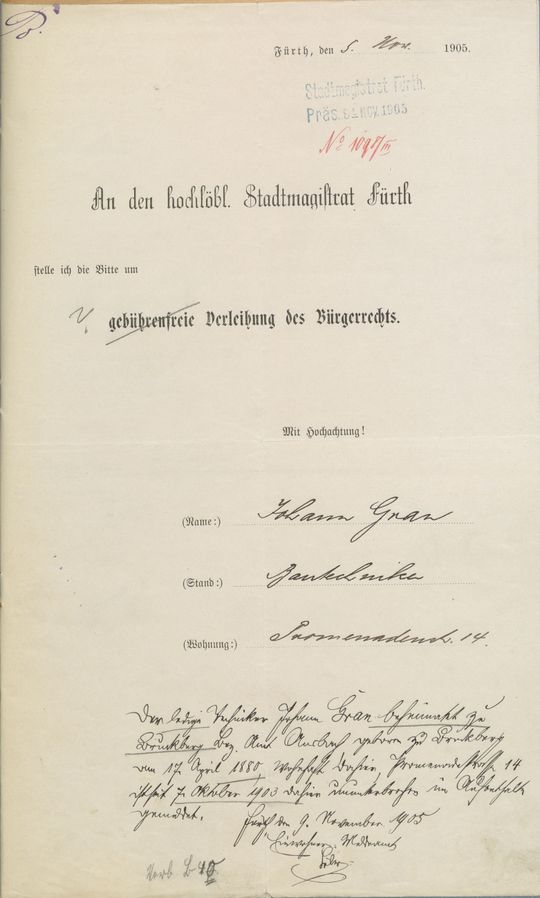 B.
Fürth, den 5. Nov. 1905.
Stadtmagistrat Fürth.
Präs. NOV. 1905
No
An den hochlöbl. Stadtmagistrat Fürth
stelle ich die Bitte um
gebührenfreie Verleihung des Bürgerrechts.
Mit Hochachtung!
(Name:) Johann Gran
(Stand:) Bautechniker
(Wohnung:) Promenadenstr. 14.
Der ledige Techniker Johann Gran beheimatet zu
Bruckberg Bez. Amt Ansbach geboren zu Bruckberg
am 17. April 1880, wohnhaft dahier, Promenadestraße 14
ist seit 7. Oktober 1903 dahier ununterbrochen im Aufenthalt
gemeldet. Fürth den 9. November 1905
Einwohner-Meldeamt